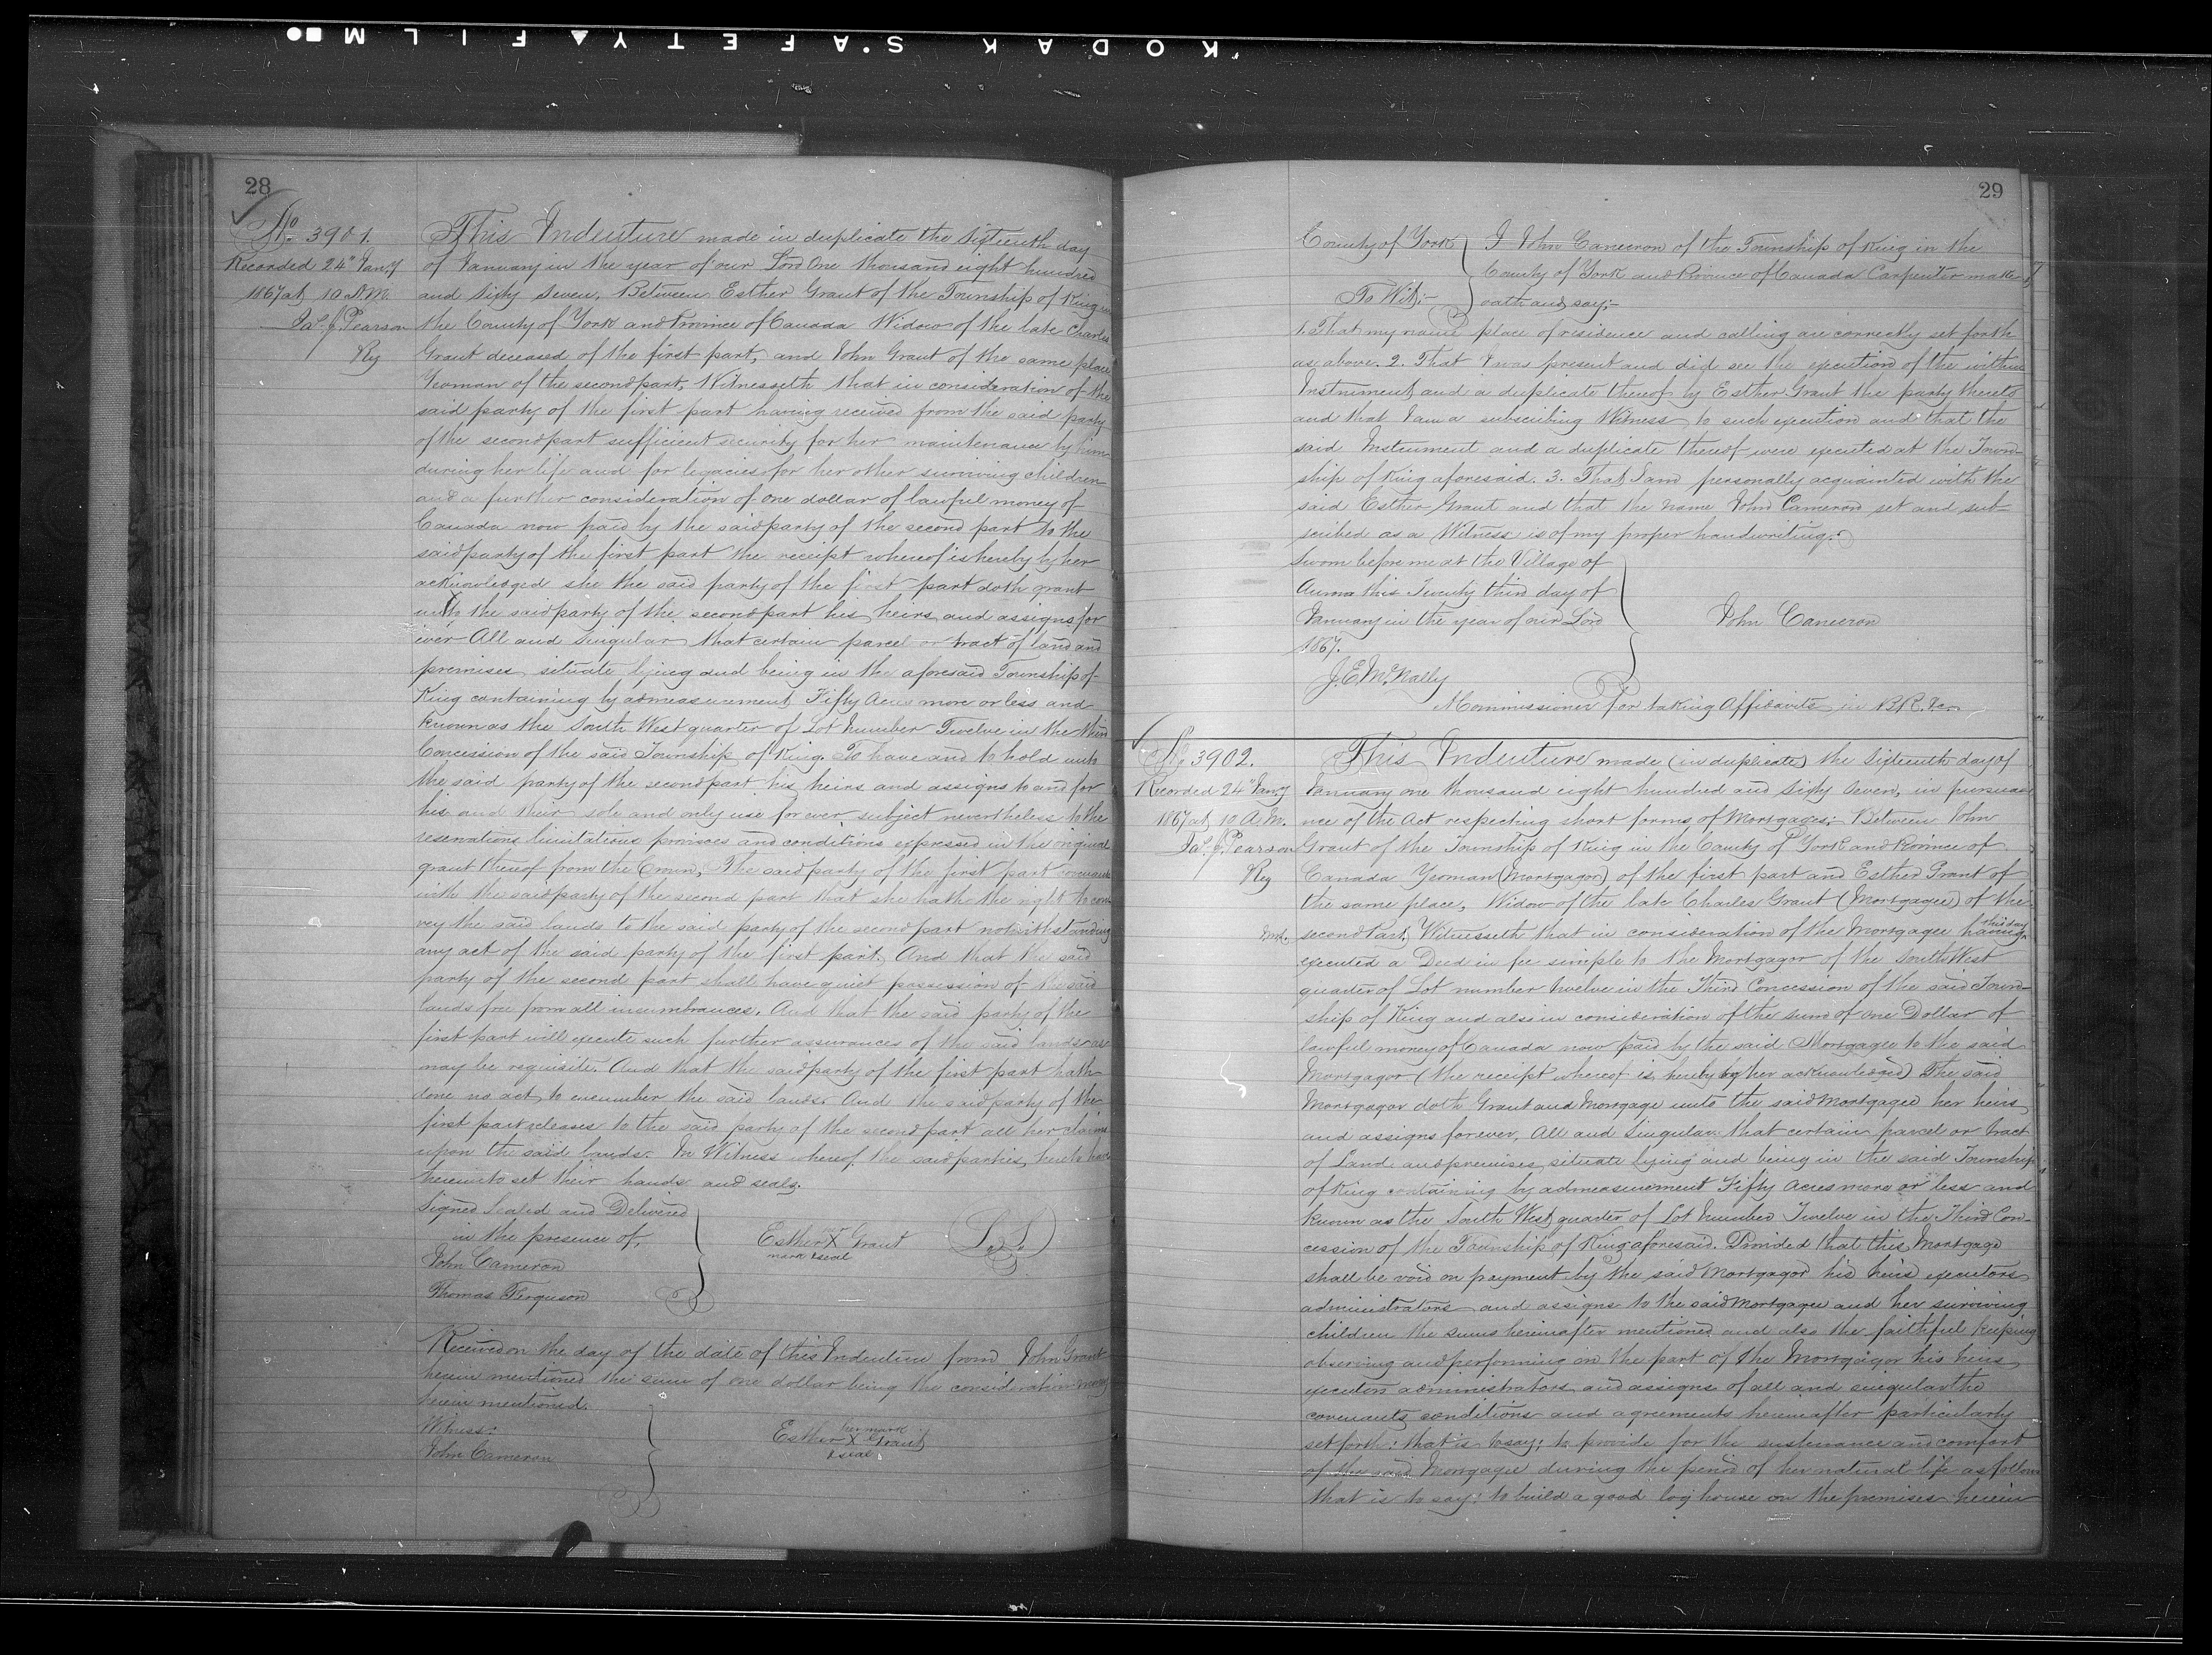 KODAK S'AFETY FILM
28
No. 3901.
Recorded 24" Jany
1867 at 10 A.M.
Jas. J. Pearson
Reg
This Indenture made in duplicate the Sixteenth day
of January in the year of our Lord One thousand eight hundred
and Sixty Seven, Between Esther Grant of the Township of King in
the County of York and Province of Canada Widow of the late Charles
Grant deceased of the first part, and John Grant of the same place
Yeoman of the second part, Witnesseth that in consideration of the
said party of the first part having received from the said party
of the second part sufficient security for her maintenance by him
during her life and for legacies for her other surviving children
and a further consideration of one dollar of lawful money of
Canada now paid by the said party of the second part to the
said party of the first part the receipt whereof is hereby by her
acknowledged she the said party of the first part doth grant
unto the said party of the second part his heirs and assigns for
ever All and Singular that certain parcel or tract of land and
premises situate lying and being in the aforesaid Township of
King containing by admeasurement Fifty Acres more or less and
known as the South West quarter of Lot Number Twelve in the third
Concession of the said Township of King. To have and to hold unto
the said party of the second part his heirs and assigns to and for
his and their sole and only use for ever subject nevertheless to the
reservations limitations provisoes and conditions expressed in the original
grant thereof from the Crown, The said party of the first part covenants
with the said party of the second part that she hath the right to con
vey the said lands to the said party of the second part notwithstanding
any act of the said party of the first part. And that the said
party of the second part shall have quiet possession of the said
lands free from all incumbrances. And that the said party of the
first part will execute such further assurances of the said lands as
may be requisite. And that the said party of the first part hath
done no act to encumber the said lands. And the said party of the
first part releases to the said party of the second part all her claims
upon the said lands. In Witness whereof the said parties hereto have
hereunto set their hands and seals.
Signed Sealed and Delivered
in the presence of,
John Cameron
Thomas Ferguson
Esther her X Grant
mark & seal
L.S.
Received on the day of the date of this Indenture from John Grant
herein mentioned the sum of one dollar being the consideration money
herein mentioned.
Witness:
John Cameron
her mark
Esther X Grant
& seal
29
County of York I John Cameron of the Township of King in the
County of York and Province of Canada Carpenter make
To Wit:- oath and say;-
1. That my name place of residence and calling are correctly set forth
as above. 2. That I was present and did see the execution of the within
Instrument and a duplicate thereof by Esther Grant the party thereto
and that I am a subscribing Witness to such execution and that the
said Instrument and a duplicate thereof were executed at the Town-
ship of King aforesaid. 3. That I am personally acquainted with the
said Esther Grant and that the name John Cameron set and sub-
scribed as a Witness is of my proper handwriting.
Sworn before me at the Village of
this Twenty third day of
January in the year of our Lord
1867.
John Cameron
J. E. McNally
Commissioner for taking Affidavits in B.R. &c.
No. 3902.
Recorded 24" Jany
1867 at 10 A.M.
Jas. J. Pearson
Reg
This Indenture made (in duplicate) the Sixteenth day of
January one thousand eight hundred and Sixty Seven, in pursua
nce of the Act respecting short forms of Mortgages:- Between John
Grant of the Township of King in the County of York and Province of
Canada Yeoman (Mortgagor) of the first part and Esther Grant of
the same place, Widow of the late Charles Grant (Mortgagee) of the
second Part, Witnesseth that in consideration of the Mortgagee having this day
executed a Deed in fee simple to the Mortgagor of the South West
quarter of Lot number twelve in the Third Concession of the said Town-
ship of King and also in consideration of the sum of one Dollar of
lawful money of Canada now paid by the said Mortgagee to the said
Mortgagor (the receipt whereof is hereby by her acknowledged) The said
Mortgagor doth Grant and Mortgage unto the said Mortgagee her heirs
and assigns forever, All and Singular that certain parcel or tract
of Land and premises situate lying and being in the said Township
of King containing by admeasurement Fifty Acres more or less and
known as the South West quarter of Lot Number Twelve in the Third Con-
cession of the Township of King aforesaid. Provided that this Mortgage
shall be void on payment by the said Mortgagor his heirs executors
administrators and assigns to the said Mortgagee and her surviving
children the sums hereinafter mentioned and also the faithful keeping
observing and performing on the part of the Mortgagor his heirs
executors administrators and assigns of all and singular the
covenants conditions and agreements hereinafter particularly
set forth: that is to say; to provide for the sustenance and comfort
of the said Mortgagee during the period of her natural life as follows
that is to say: to build a good log house on the premises herein